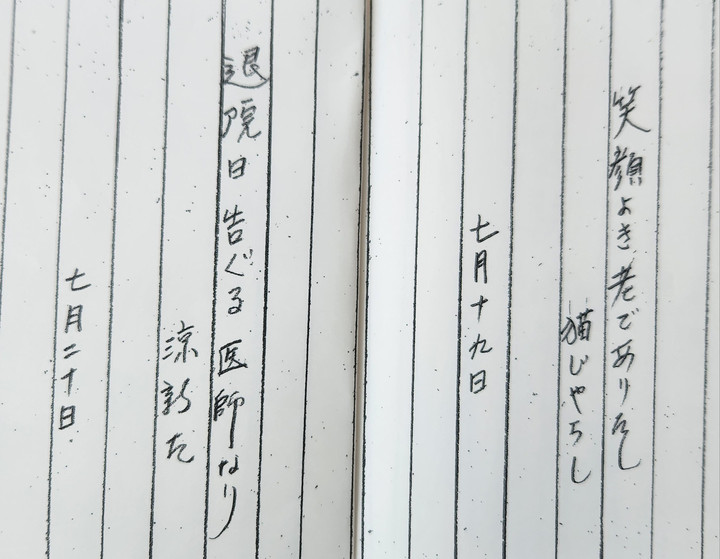 笑顔よき老でありたし
猫じやらし
七月十九日
退院日告ぐる医師なり
涼新た
七月二十日.